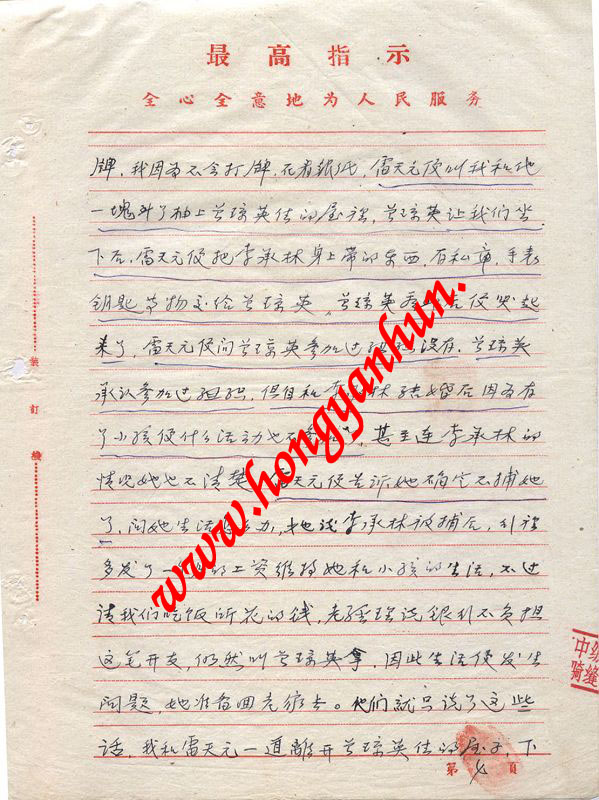 最高指示
全心全意地为人民服务
牌，我因为不会打牌，在看报纸，雷天元便叫我和他
一块到了楼上曾琼英住的屋裡，曾琼英让我们坐
下后，雷天元便把李承林身上带的东西，有私章，手表
钥匙等物交给曾琼英，曾琼英看后便哭起
来了，雷天元便问曾琼英参加过组织没有，曾琼英
承认参加过组织，但自和李林结婚后因为有
了小孩便什么活动也不，甚至连李承林的
情况她也不清楚，雷天元便告诉她确定不捕她
了，问她生活办，她说李承林被捕后，引裡
多发了一的工资维持她和小孩的生活，不过
请我们吃饭所花的钱，老经理说银引不负担
这笔开支，仍然叫曾琼英拿，因此生活便发生
问题，她准备回老家去。他们就只说了这些
话，我和雷天元一道离开曾琼英住的屋子，下
装订线
www.hongyanhun.
骑缝
第4页